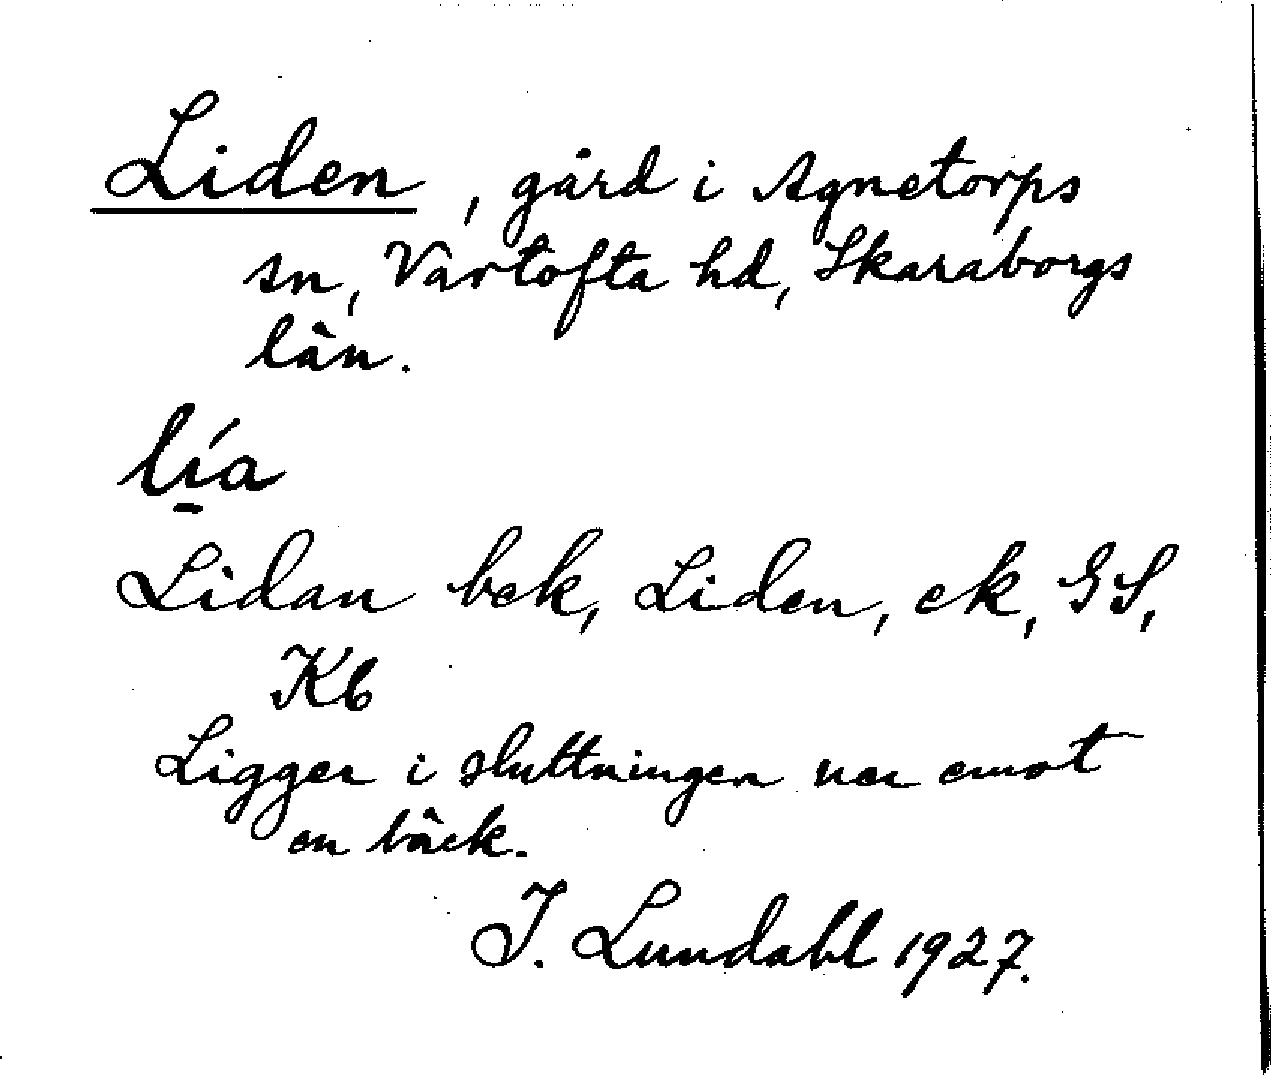 Liden, gård i Agnetorps
sn, Vartofta hd, Skaraborgs
län.
lí̱a
Lidan bek, Liden, ek, GS,
Kb
Ligger i sluttningen ner emot
en bäck.
I. Lundahl 1927.